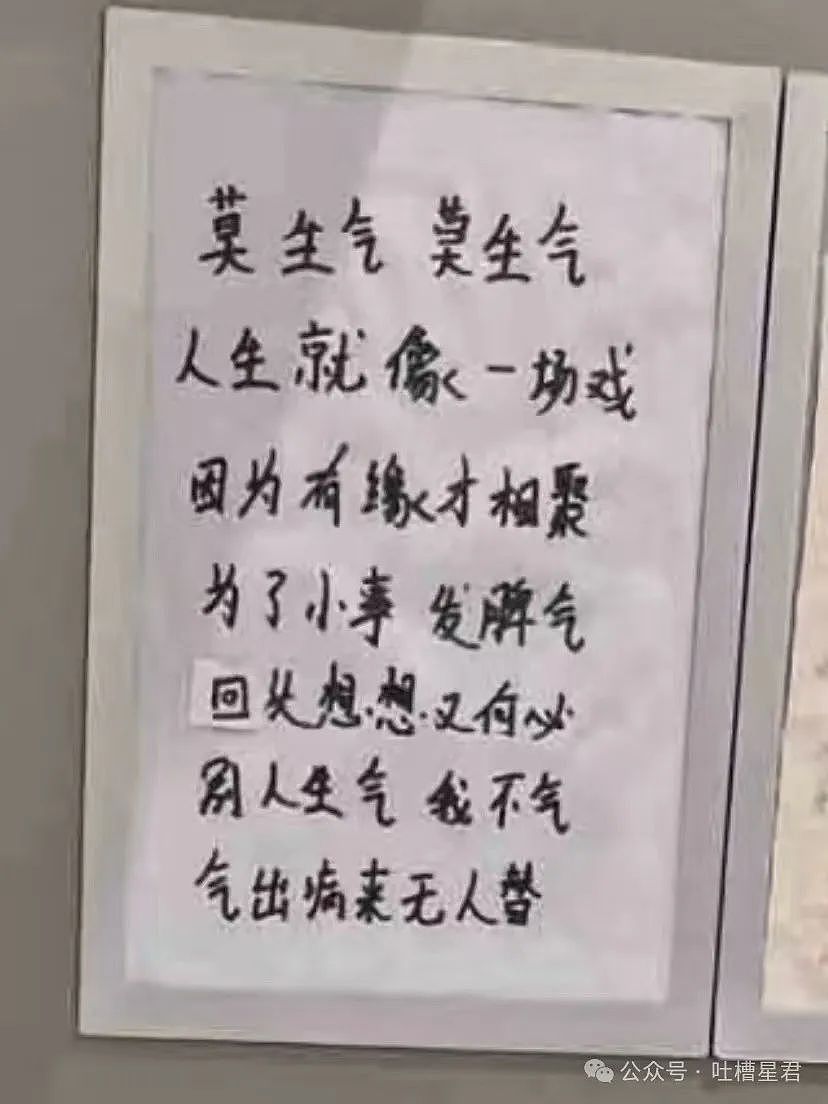 莫生气 莫生气
人生就像一场戏
因为有缘才相聚
为了小事 发脾气
回头想想又何必
别人生气 我不气
气出病来无人替
公众号·吐槽星君